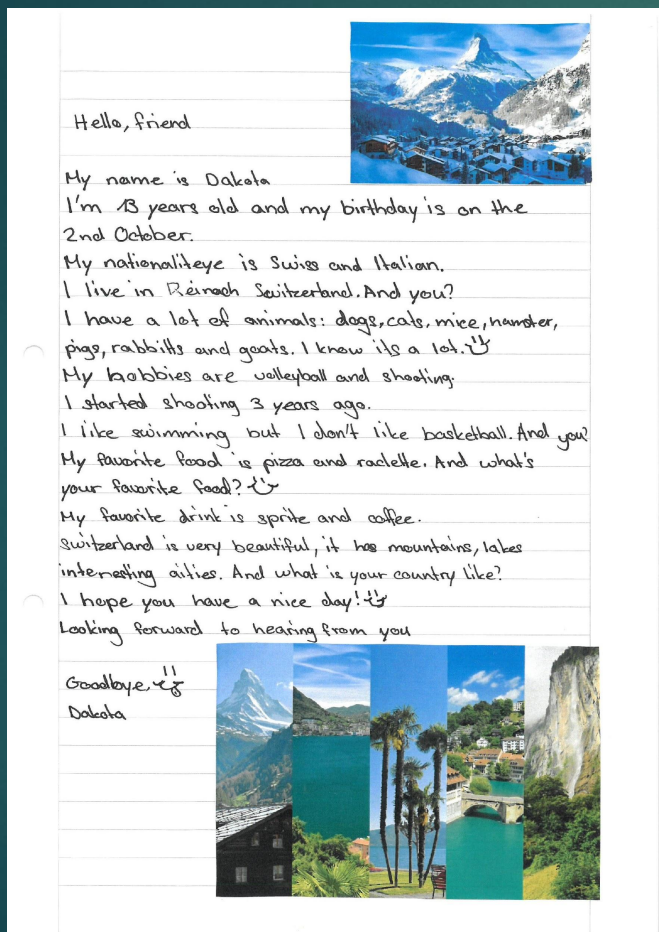 Hello, friend
My name is Dakota
I'm 13 years old and my birthday is on the
2nd October.
My nationaliteye is Swiss and Italian.
I live in Reinach Switzerland. And you?
I have a lot of animals: dogs, cats, mice, hamster,
pigs, rabbitts and goats. I know its a lot.
My hobbies are volleyball and shooting.
I started shooting 3 years ago.
I like swimming but I don't like basketball. And you?
My favorite food is pizza and raclette. And what's
your favorite food?
My favorite drink is sprite and coffee.
Switzerland is very beautiful, it has mountains, lakes
interesting cities. And what is your country like?
I hope you have a nice day!
Looking forward to hearing from you
Goodbye,
Dakota